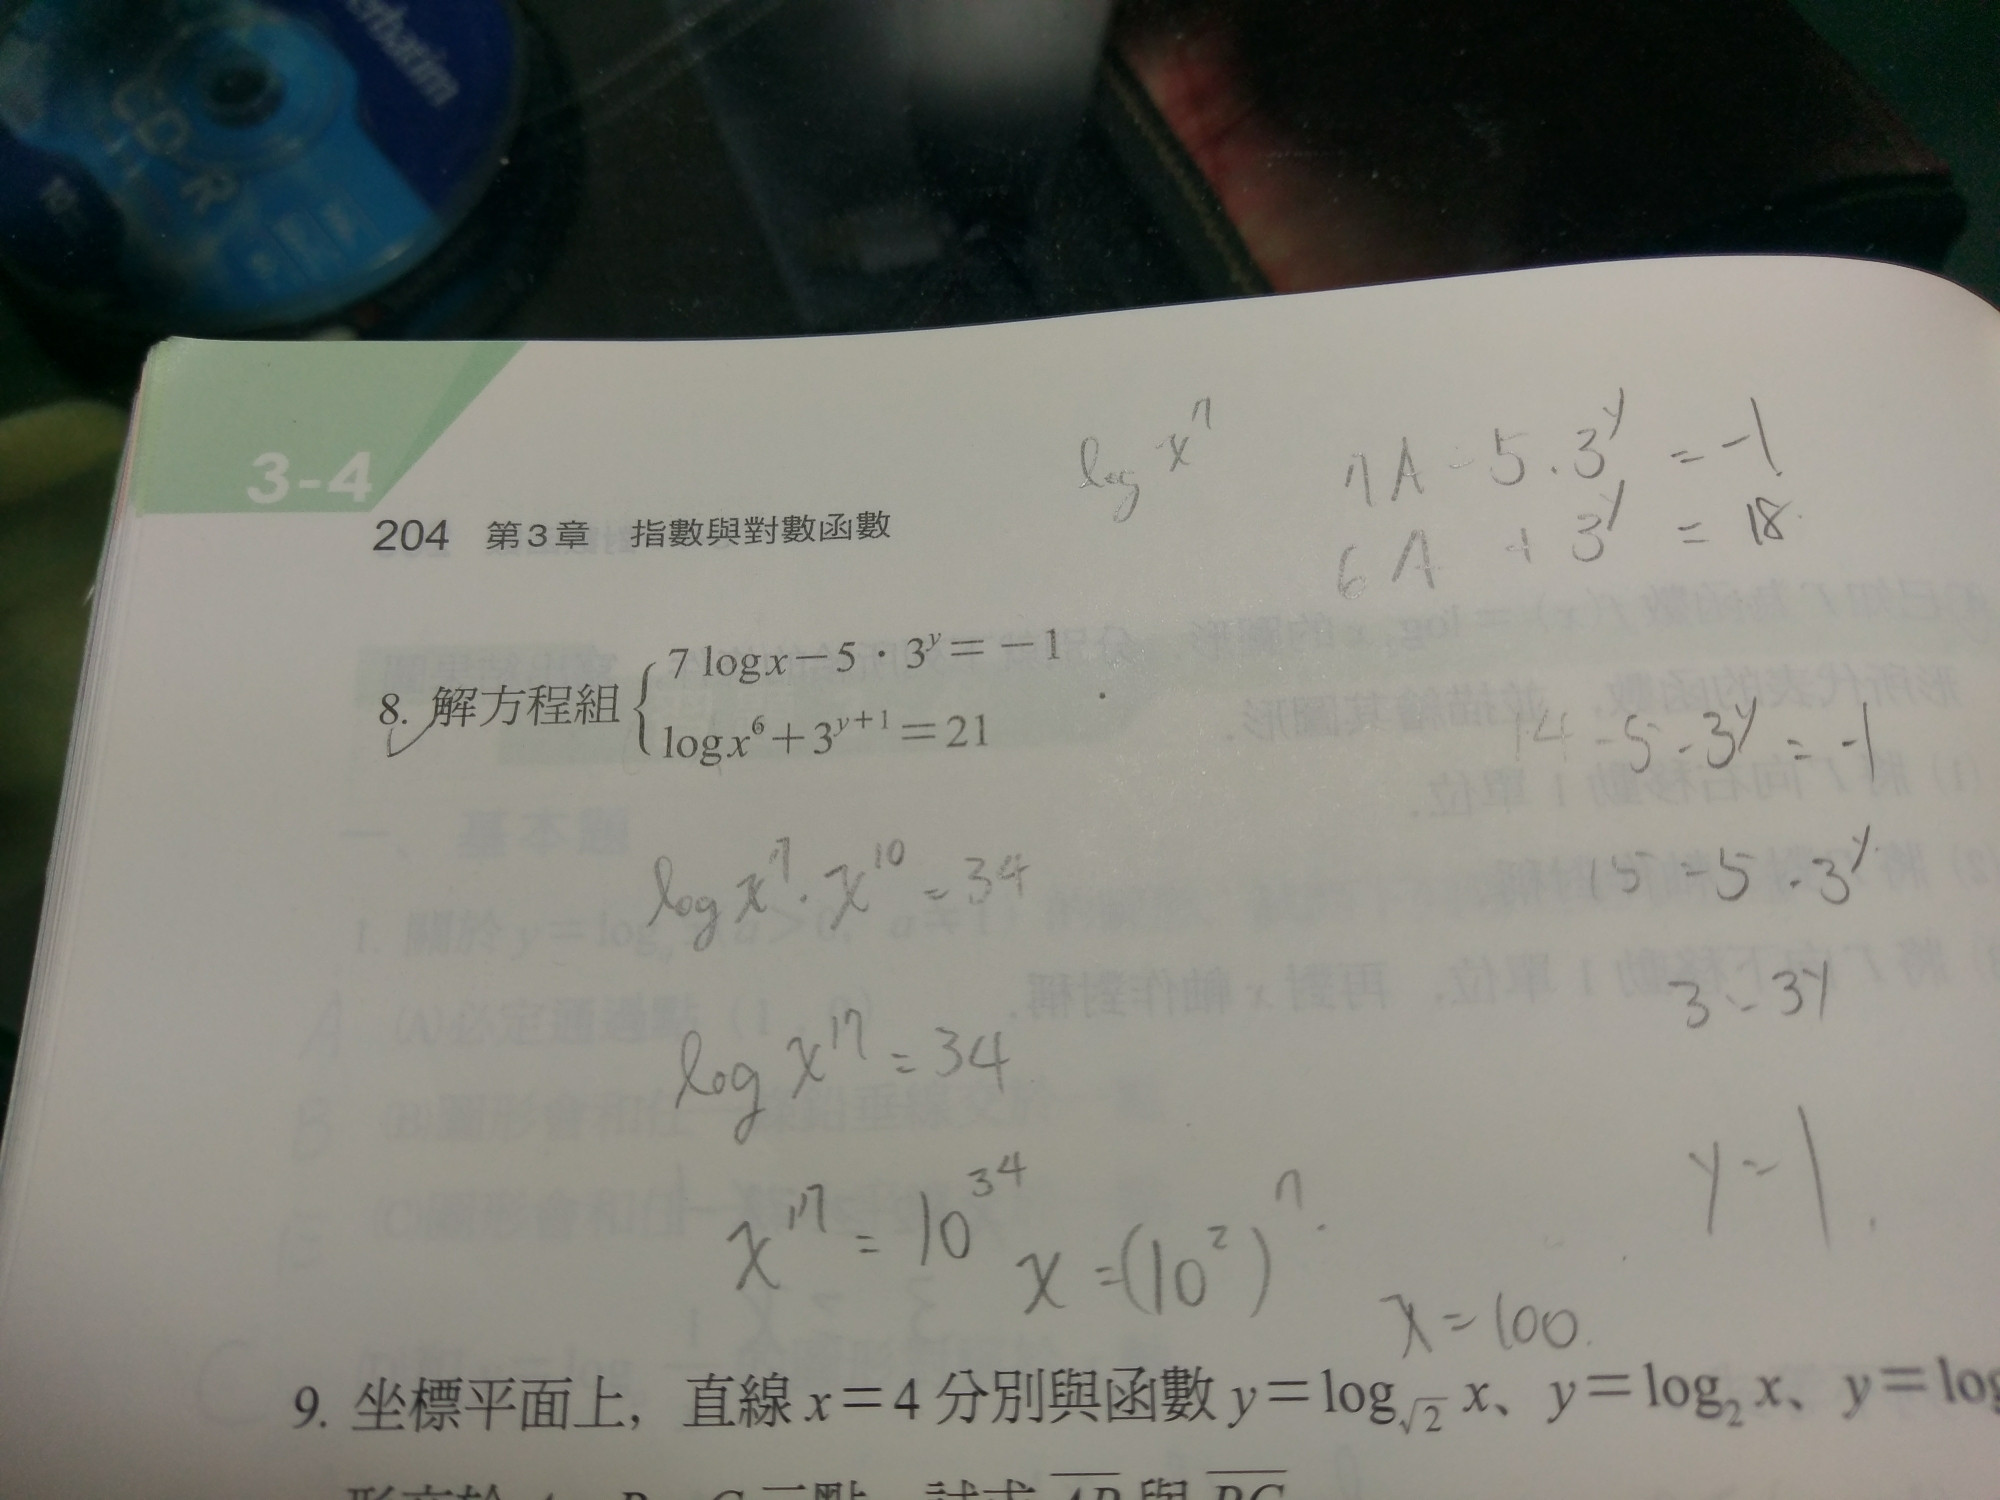 Verbatim
CD-R
3-4
204 第3章 指數與對數函數
log x⁷
7A - 5 · 3ʸ = -1
6A + 3ʸ = 18
8. 解方程組 { 7 log x − 5 · 3ʸ = −1
log x⁶ + 3ʸ⁺¹ = 21
14 - 5 · 3ʸ = -1
log x⁷ · x¹⁰ = 34
15 = 5 · 3ʸ
3 = 3ʸ
log x¹⁷ = 34
y = 1
x¹⁷ = 10³⁴
x = (10²)⁷
x = 100
9. 坐標平面上，直線 x＝4 分別與函數 y＝log_√2 x、y＝log₂ x、y＝log